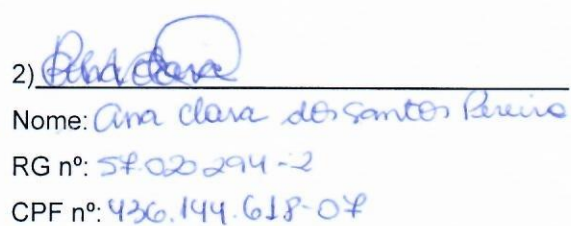 2) Ana Clara
Nome: Ana Clara dos Santos Pereira
RG nº: 57.020.294-2
CPF nº: 436.144.618-07